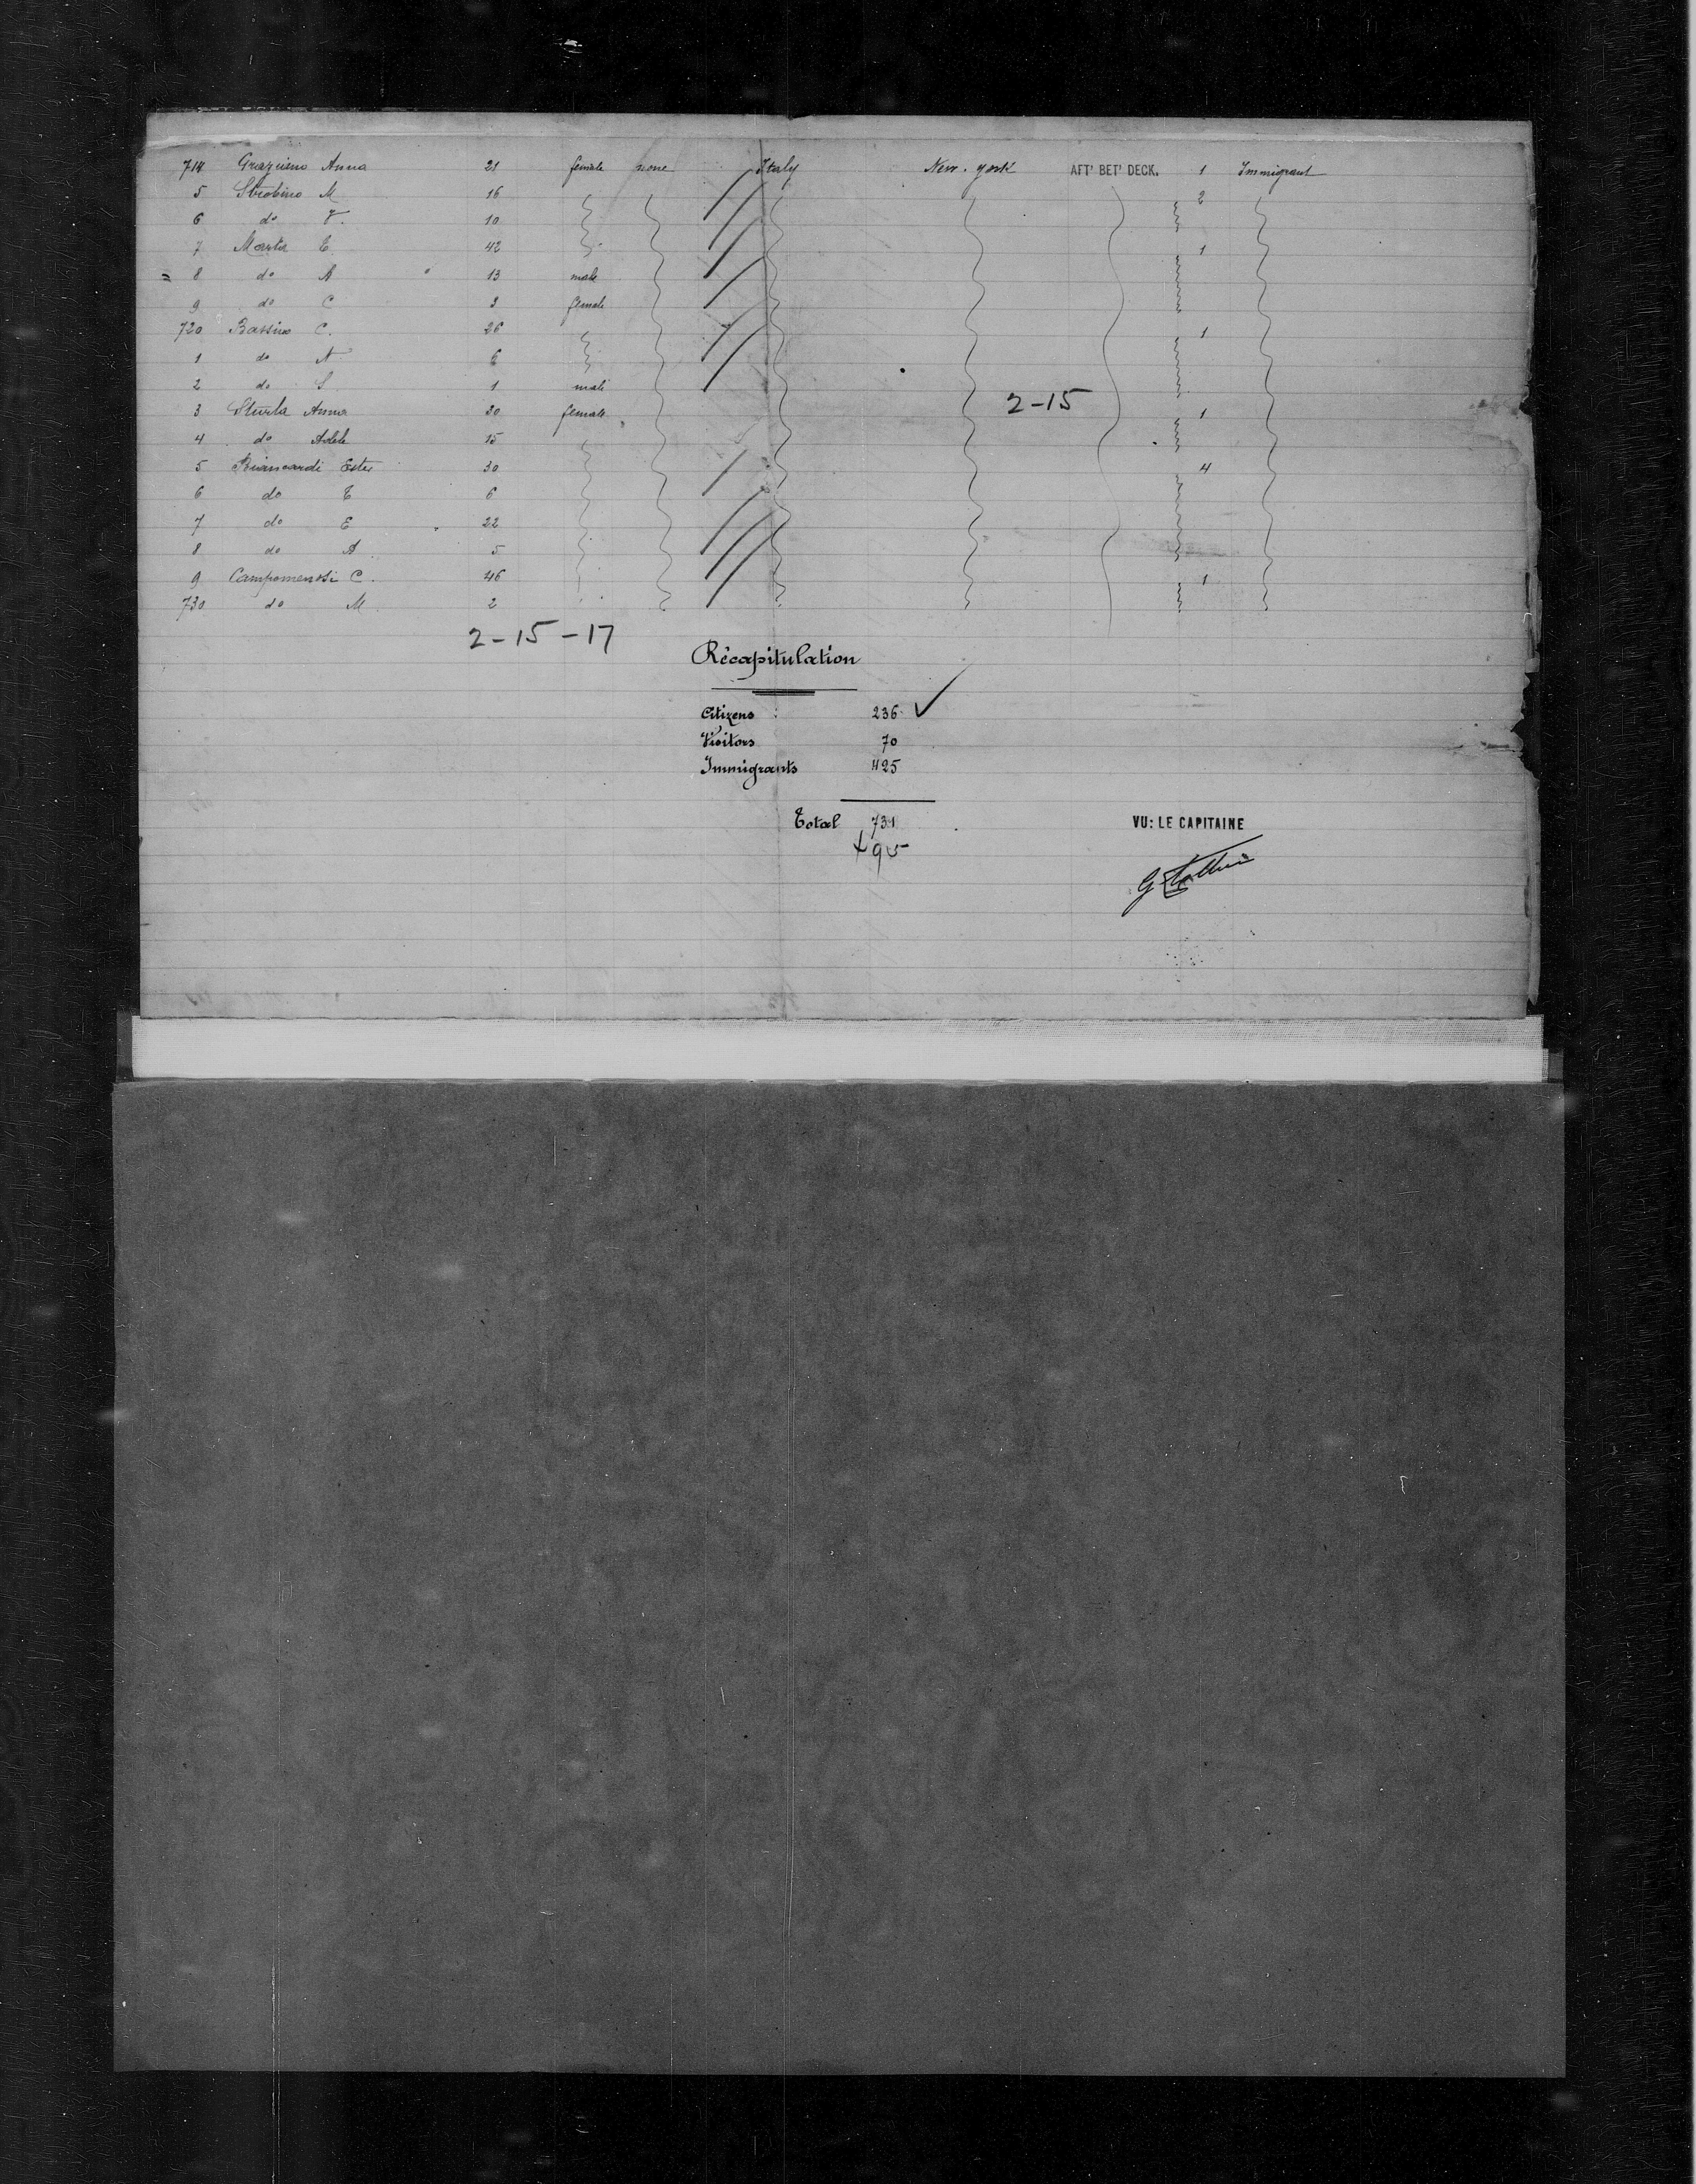 714 Graziano Anna 21 female none Italy New-York AFT' BET' DECK. 1 Immigrant
5 Strobino M 16 2
6 do V. 10
7 E 42 1
= 8 do A 13 male
9 do C 3 female
720 Bassino C. 26 1
1 do N 6
2 do S 1 male
3 Sturla Anna 30 female 1
2-15
4 do Adele 15
5 Biancardi Ester 30 4
6 do E 6
7 do E 22
8 do A 5
9 Campomenosi C. 46 1
730 do M 2
2-15-17
Récapitulation
Citizens : 236 ✓
Visitors 70
Immigrants 425
Total 731
VU: LE CAPITAINE